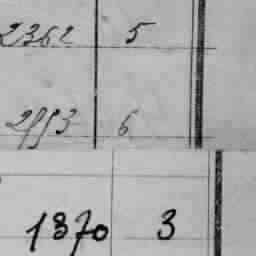 2362 5
2993 6
1370 3